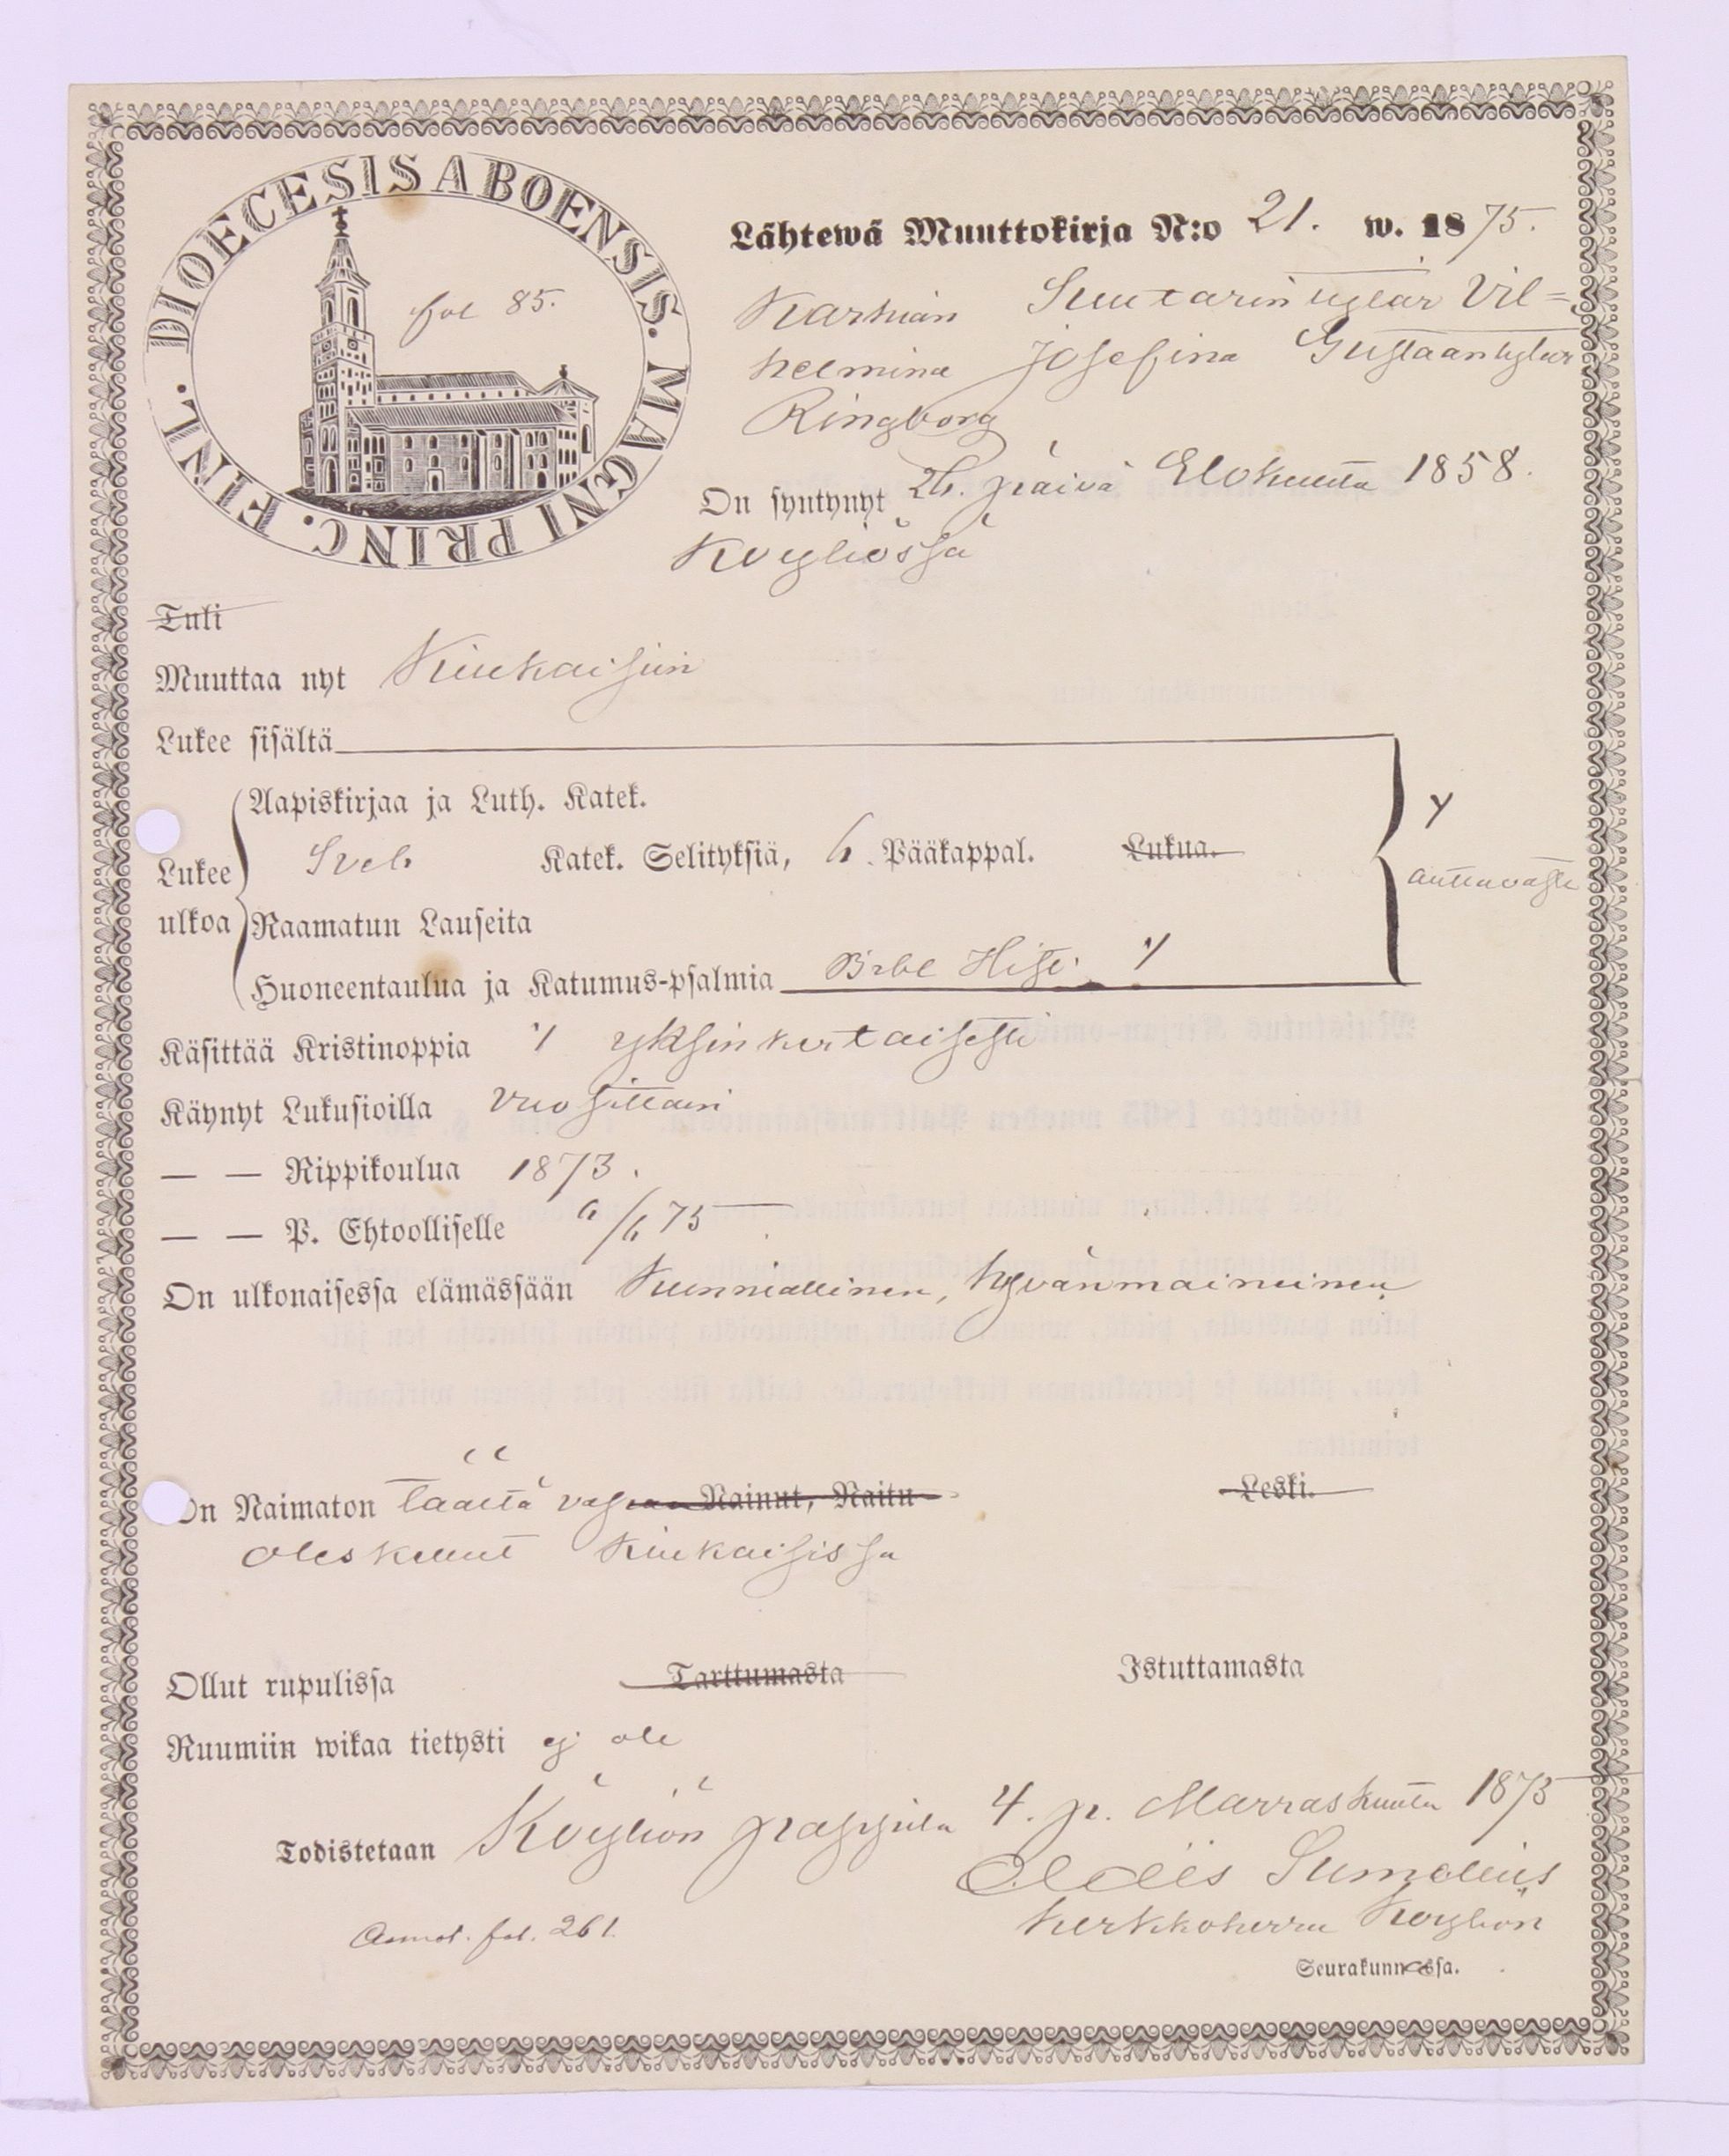 DIOECESIS ABOENSIS. MAGNI PRINC. FINL.
fol 85.
Lähtewä Muuttokirja N:o 21. w. 1875.
Karhian Suutarin tytär Vil=
helmina Josefina Gustaantytär
Ringborg
On syntynyt 26. päivä Elokuuta 1858.
Köyliössä
Tuli
Muuttaa nyt Kiukaisiin
Lukee sisältä
Aapiskirjaa ja Luth. Katek.
Lukee ulkoa
Sveb Katek. Selityksiä, 6. Pääkappal. Lukua.
auttavasti
Raamatun Lauseita
Huoneentaulua ja Katumus-psalmia Bibl Hist.
Käsittää Kristinoppia yksinkertaisesti
Käynyt Lukusioilla vuosittain
— — Rippikoulua 1873.
— — P. Ehtoolliselle 6/6 75
On ulkonaisessa elämässään Kunniallinen, hyvänmaineinen
On Naimaton täältä vapaa Nainut, Naitu Leski.
oleskellut Kiukaisissa
Ollut rupulissa Tarttumasta Istuttamasta
Ruumiin wikaa tietysti ej ole
Todistetaan Köyliön pappila 4. p. Marraskuuta 1875
Sumelius
Kirkkoherra Köyliön
Seurakunnassa.
Annot. fol. 261.